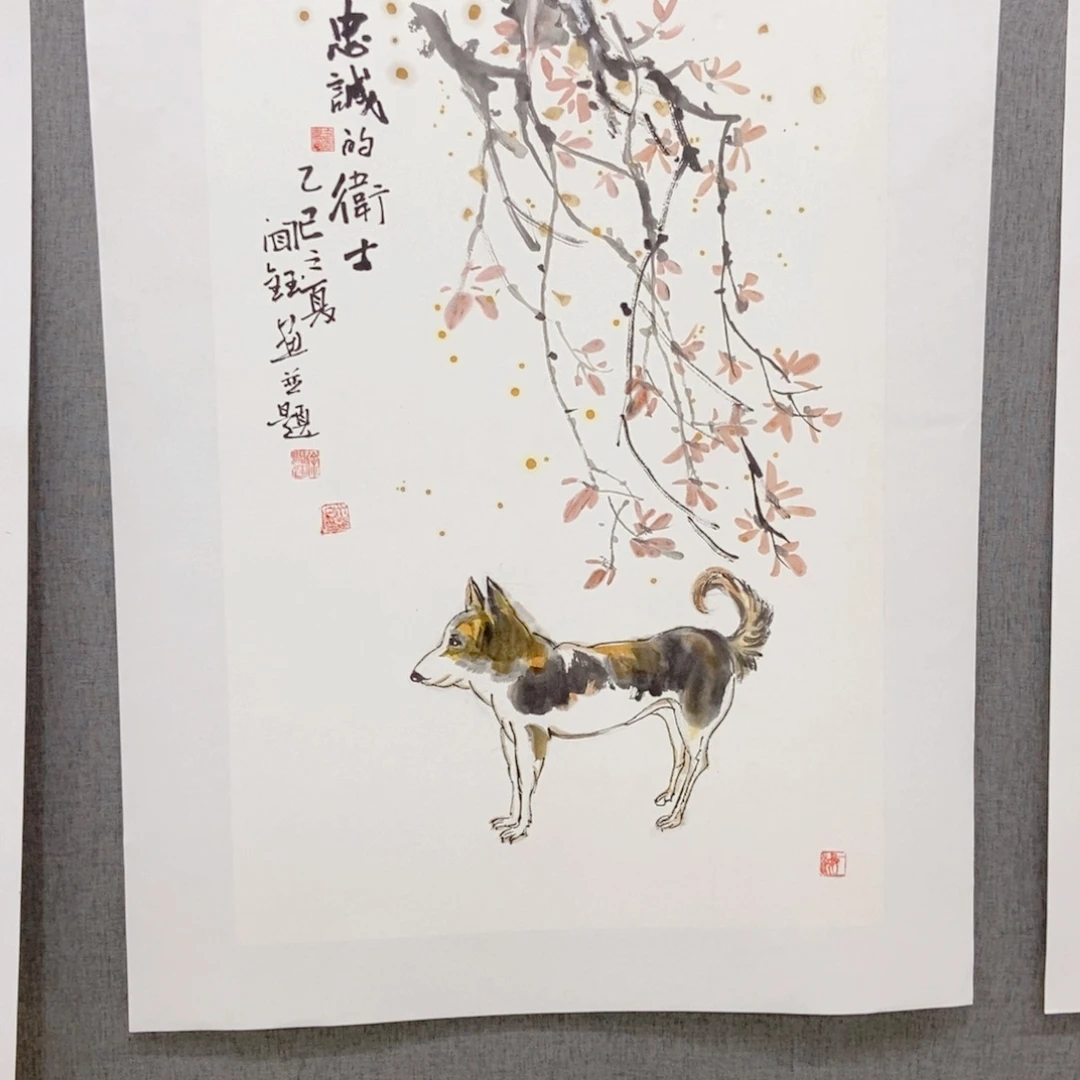 忠誠的衛士
乙巳之夏
鈺畫並題